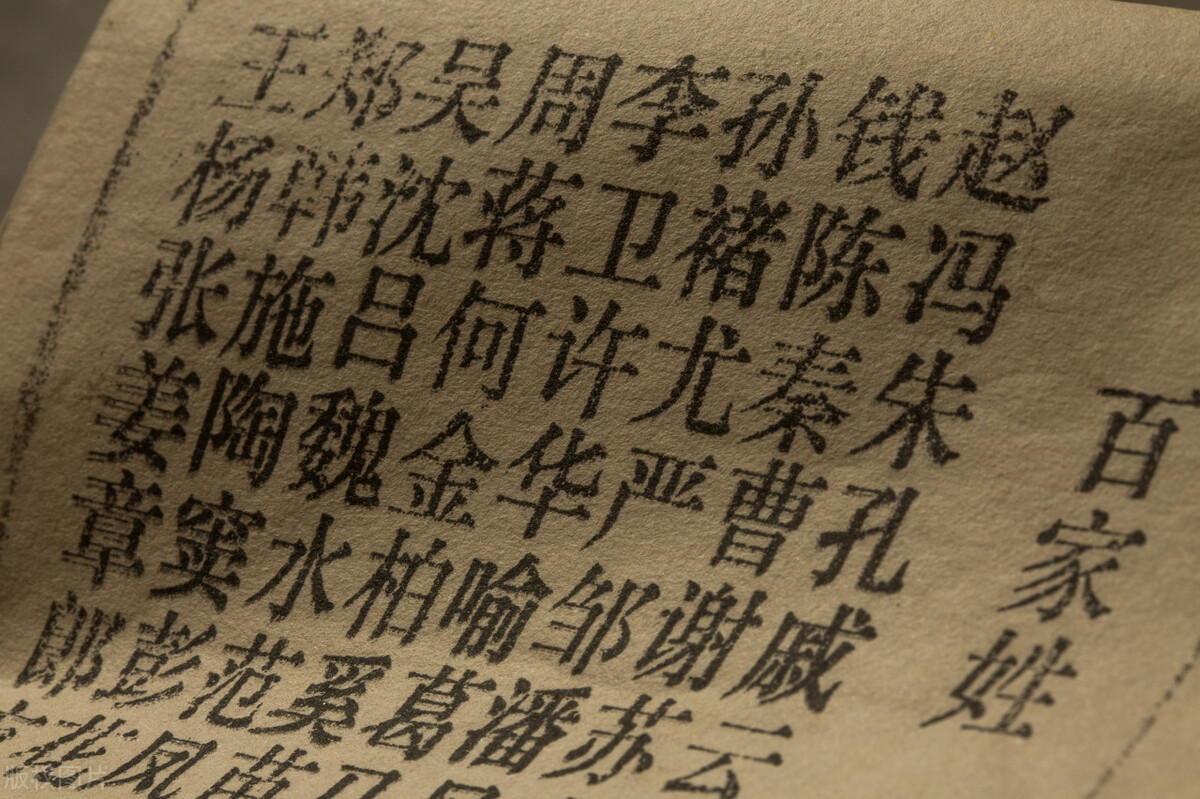 百家姓
赵钱孙李周吴郑王
冯陈褚卫蒋沈韩杨
朱秦尤许何吕施张
孔曹严华金魏陶姜
戚谢邹喻柏水窦章
云苏潘葛奚范彭郎
苗凤花
版权图片